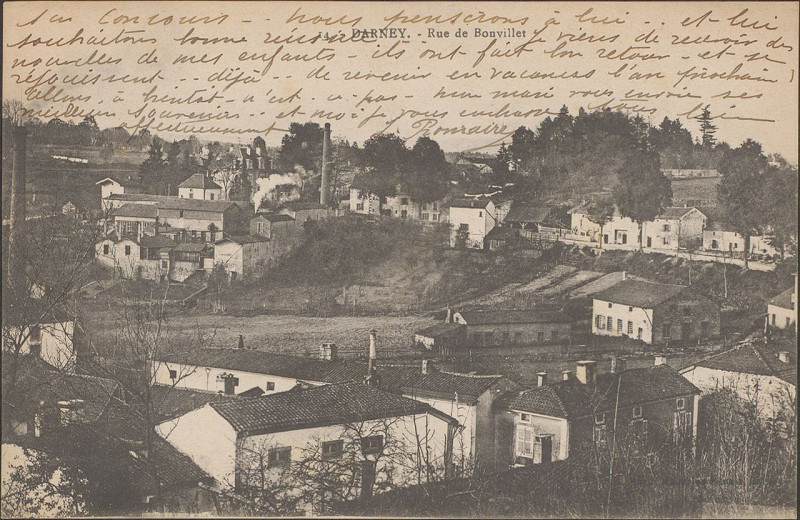 son Concours - nous penserons à lui .. et lui
14. - DARNEY. - Rue de Bonvillet
souhaitons bonne réussite. Je viens de recevoir des
nouvelles de mes enfants - ils ont fait bon retour - et se
réjouissent .. déjà .. de revenir en vacances l'an prochain !
Allons, à bientôt - n'est-ce-pas - mon mari vous envoie ses
meilleurs souvenirs .. et moi je vous embrasse tous bien
affectueusement Romaire